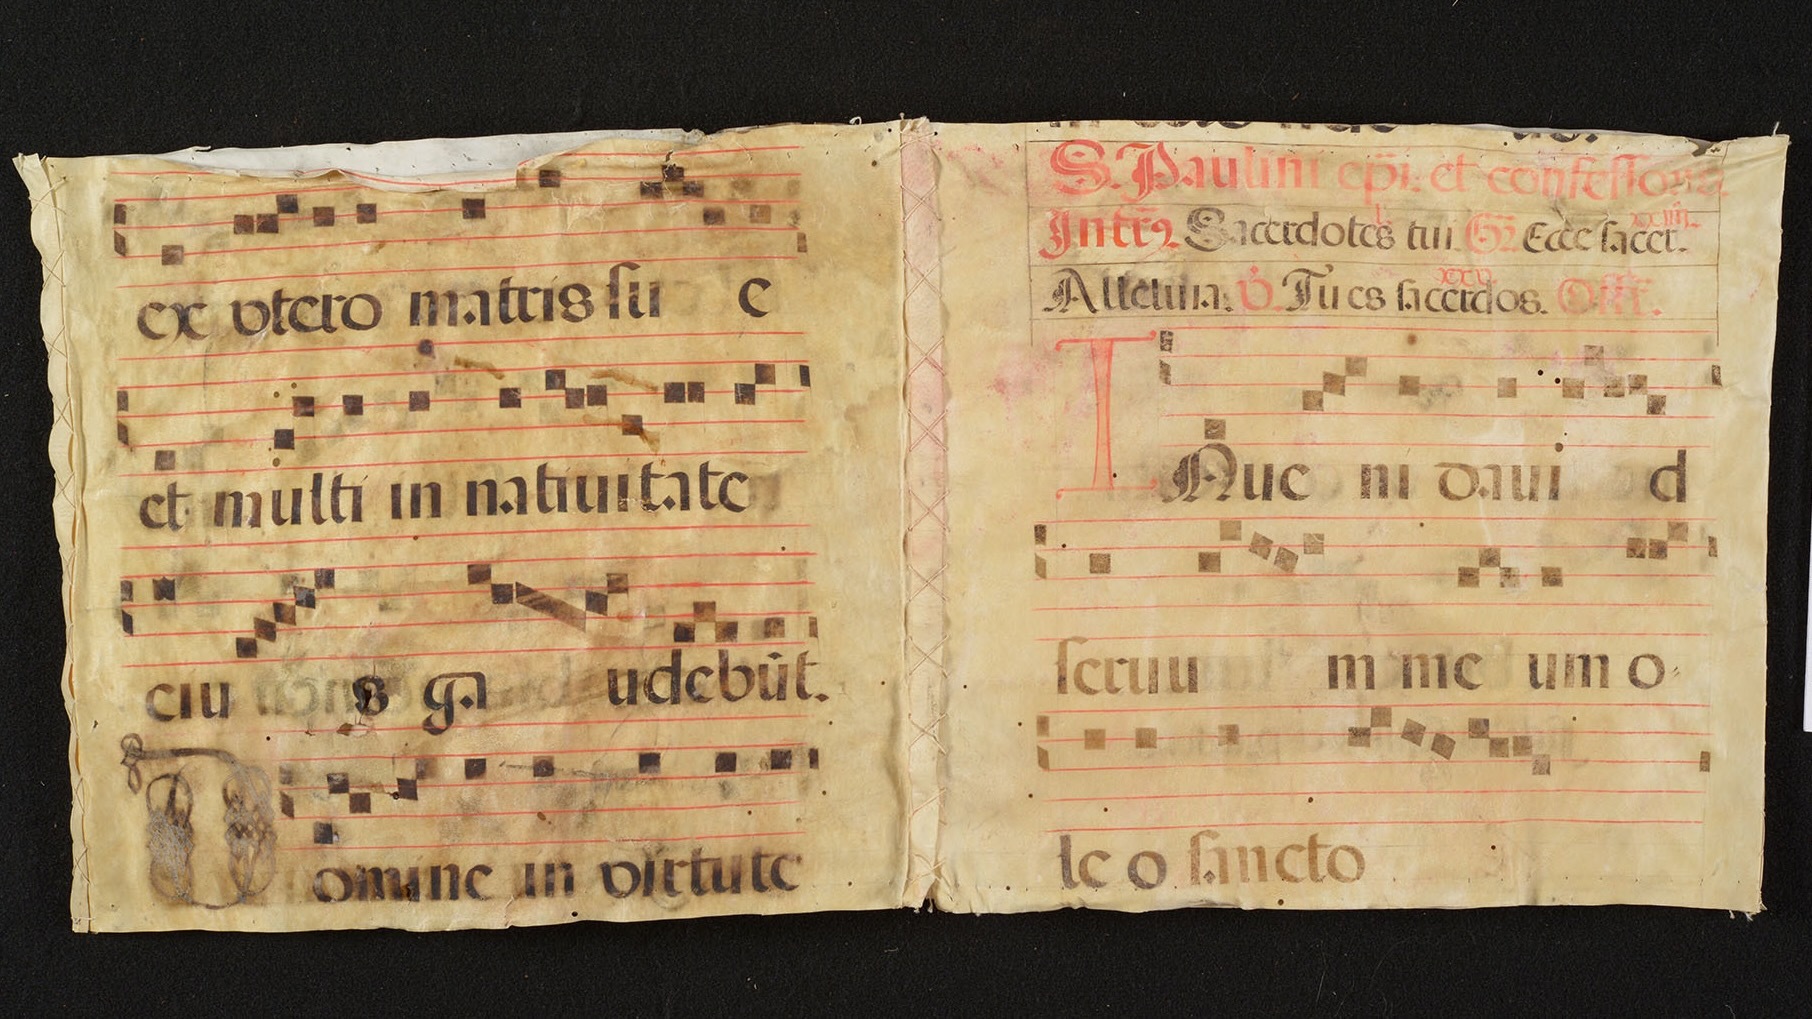 ex vtero matris su e
et multi in natiuitate
eiu s ga udebūt.
Domine in virtute
S. Paulini epi: et confessoris
Intr9. Sacerdotes tui. Gr. Ecce sacer.
Alleluia. V. Tu es sacerdos. Offr.
INue ni daui d
seruu m me um o
le o sancto